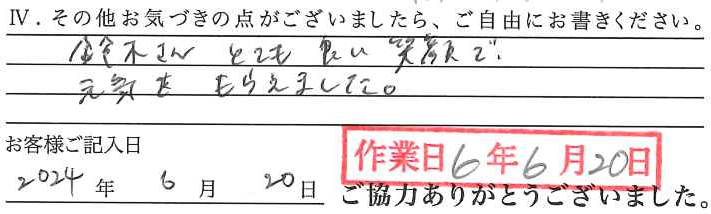 Ⅳ. その他お気づきの点がございましたら、ご自由にお書きください。
鈴木さん とても良い笑顔で、
元気をもらえました。
お客様ご記入日
作業日6年6月20日
2024年 6月 20日
ご協力ありがとうございました。